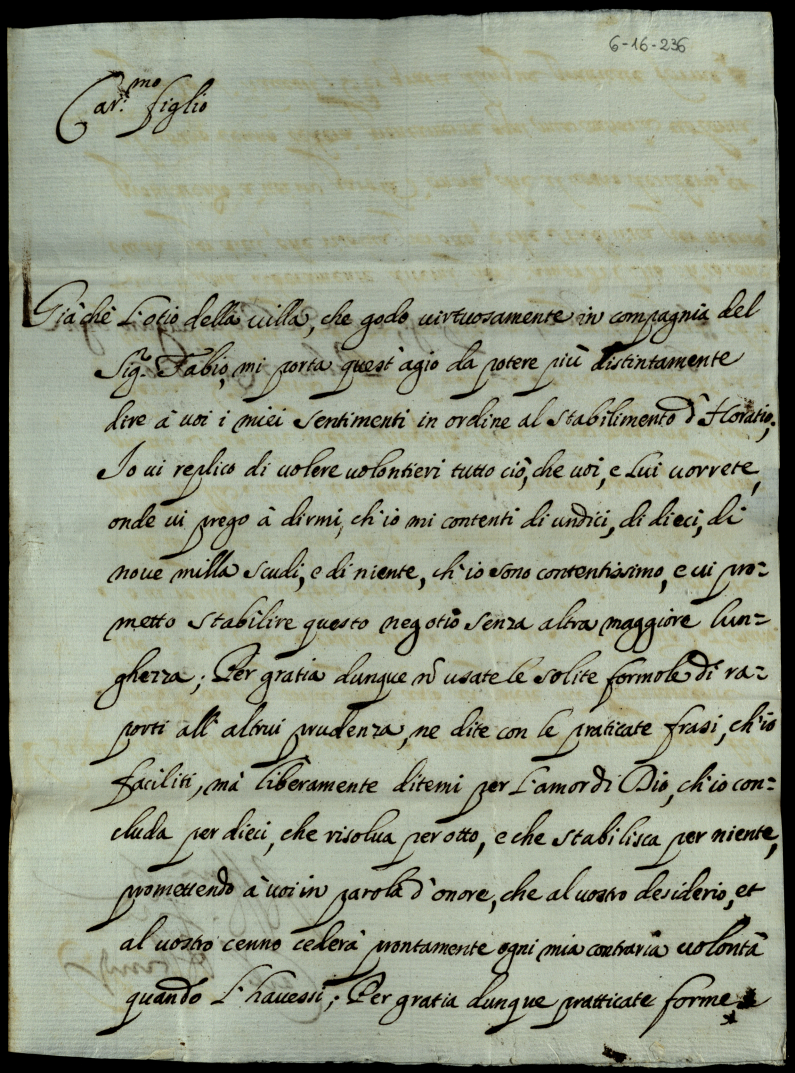 6-16-236
Car.mo figlio
Già che l'otio della villa, che godo virtuosamente in compagnia del
Sig.r Fabio, mi porta quest'agio da potere più distintamente
dire à voi i miei sentimenti in ordine al stabilimento d'Horatio;
Io vi replico di volere volontieri tutto ciò, che voi, e Lui vorrete,
onde vi prego à dirmi, ch'io mi contenti di undici, di dieci, di
nove milla scudi, e di niente, ch'io sono contentissimo, e vi pro=
metto stabilire questo negotio senza altra maggiore lun=
ghezza; Per gratia dunque nō usate le solite formole di ra=
porti all'altrui prudenza, ne dite con le praticate frasi, ch'io
faciliti, mà liberamente ditemi per l'amor di Dio, ch'io con=
cluda per dieci, che risolva per otto, e che stabilisca per niente,
promettendo à voi in parola d'onore, che al vostro desiderio, et
al vostro cenno cederà prontamente ogni mia contraria volontà
quando l'havessi; Per gratia dunque pratticate forme